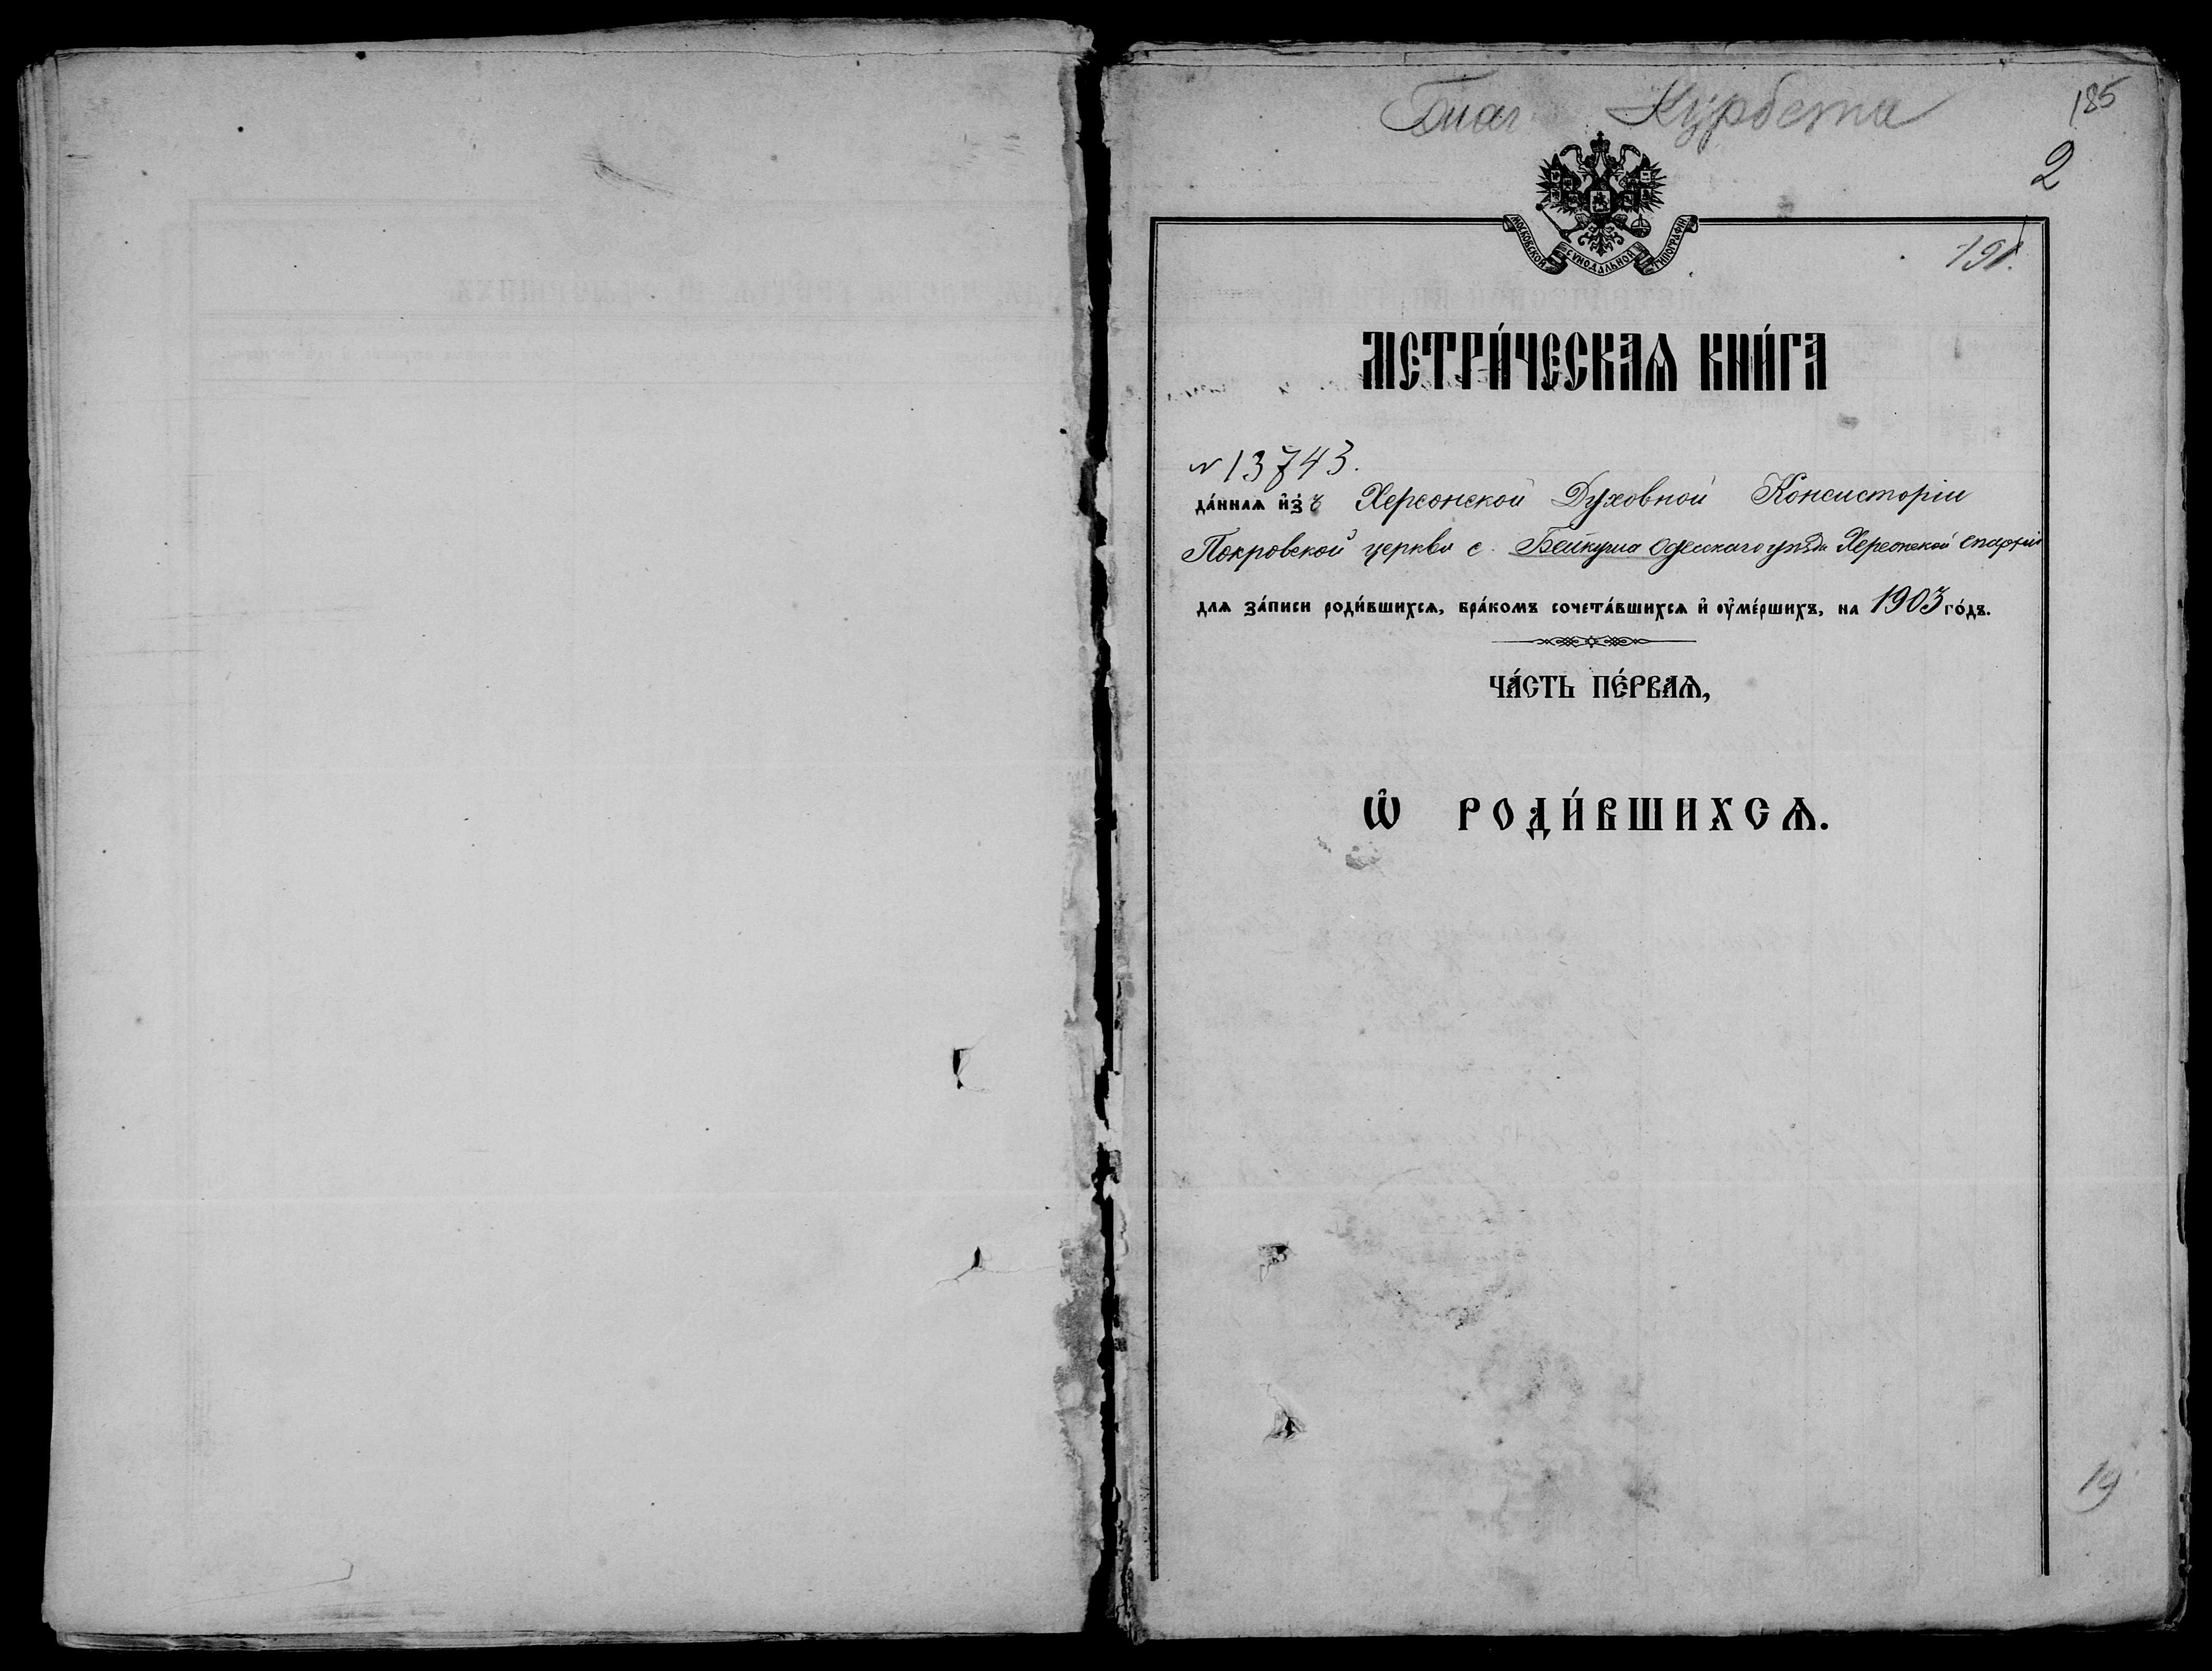 Благ. Курбета
185
2
МОСКОВСКОЙ СѴНОДАЛЬНОЙ ТИПОГРАФІИ
191.
МЕТРИ́ЧЕСКАѦ КНИ́ГА
№ 13743.
да́ннаѧ и҆зъ Херсонской Духовной Консисторіи
Покровской церкви с. Бейкуша Одесскаго уѣзда Херсонской епархіи
для за́писи роди́вшихсѧ, бра́комъ сочета́вшихсѧ и҆ ᲂу҆ме́ршихъ, на 1903 го́дъ.
ЧА́СТЬ ПЕ́РВАѦ,
Ѡ҆ РОДИ́ВШИХСѦ.
19